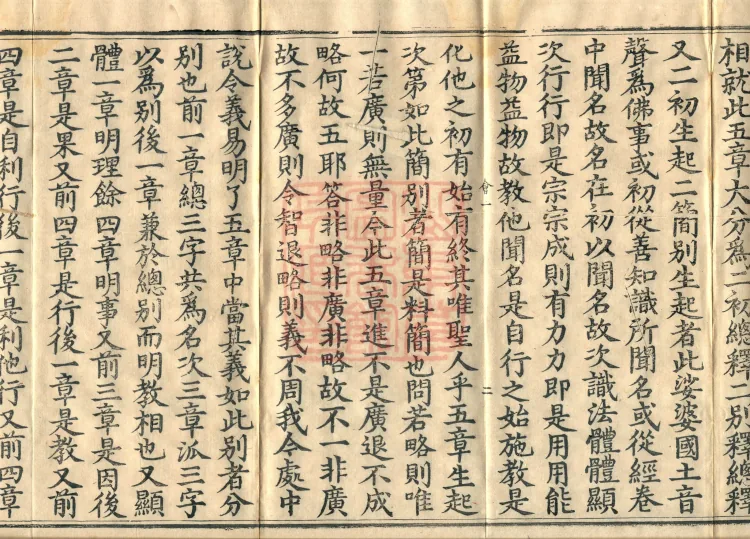 相就此五章大分爲二初總釋二別釋總釋
又二初生起二簡別生起者此娑婆國土音
聲爲佛事或初從善知識所聞名或從經卷
中聞名故名在初以聞名故次識法體體顯
次行行即是宗宗成則有力力即是用用能
益物益物故教他聞名是自行之始施教是
會一
二
化他之初有始有終其唯聖人乎五章生起
次第如此簡別者簡是料簡也問若略則唯
一若廣則無量今此五章進不是廣退不成
略何故五耶答非略非廣非略故不一非廣
故不多廣則令智退略則義不周我今處中
說令義易明了五章中當其義如此別者分
別也前一章總三字共爲名次三章泒三字
以爲別後一章兼於總別而明教相也又顯
體一章明理餘四章明事又前三章是因後
二章是果又前四章是行後一章是教又前
四章是自利行後一章是利他行又前四章